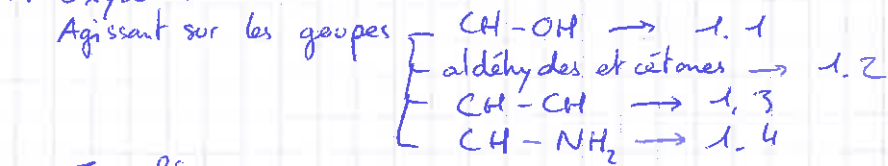 Agissant sur les goupes CH-OH → 1.1
aldéhydes et cétones → 1.2
CH-CH → 1.3
CH-NH₂ → 1.4